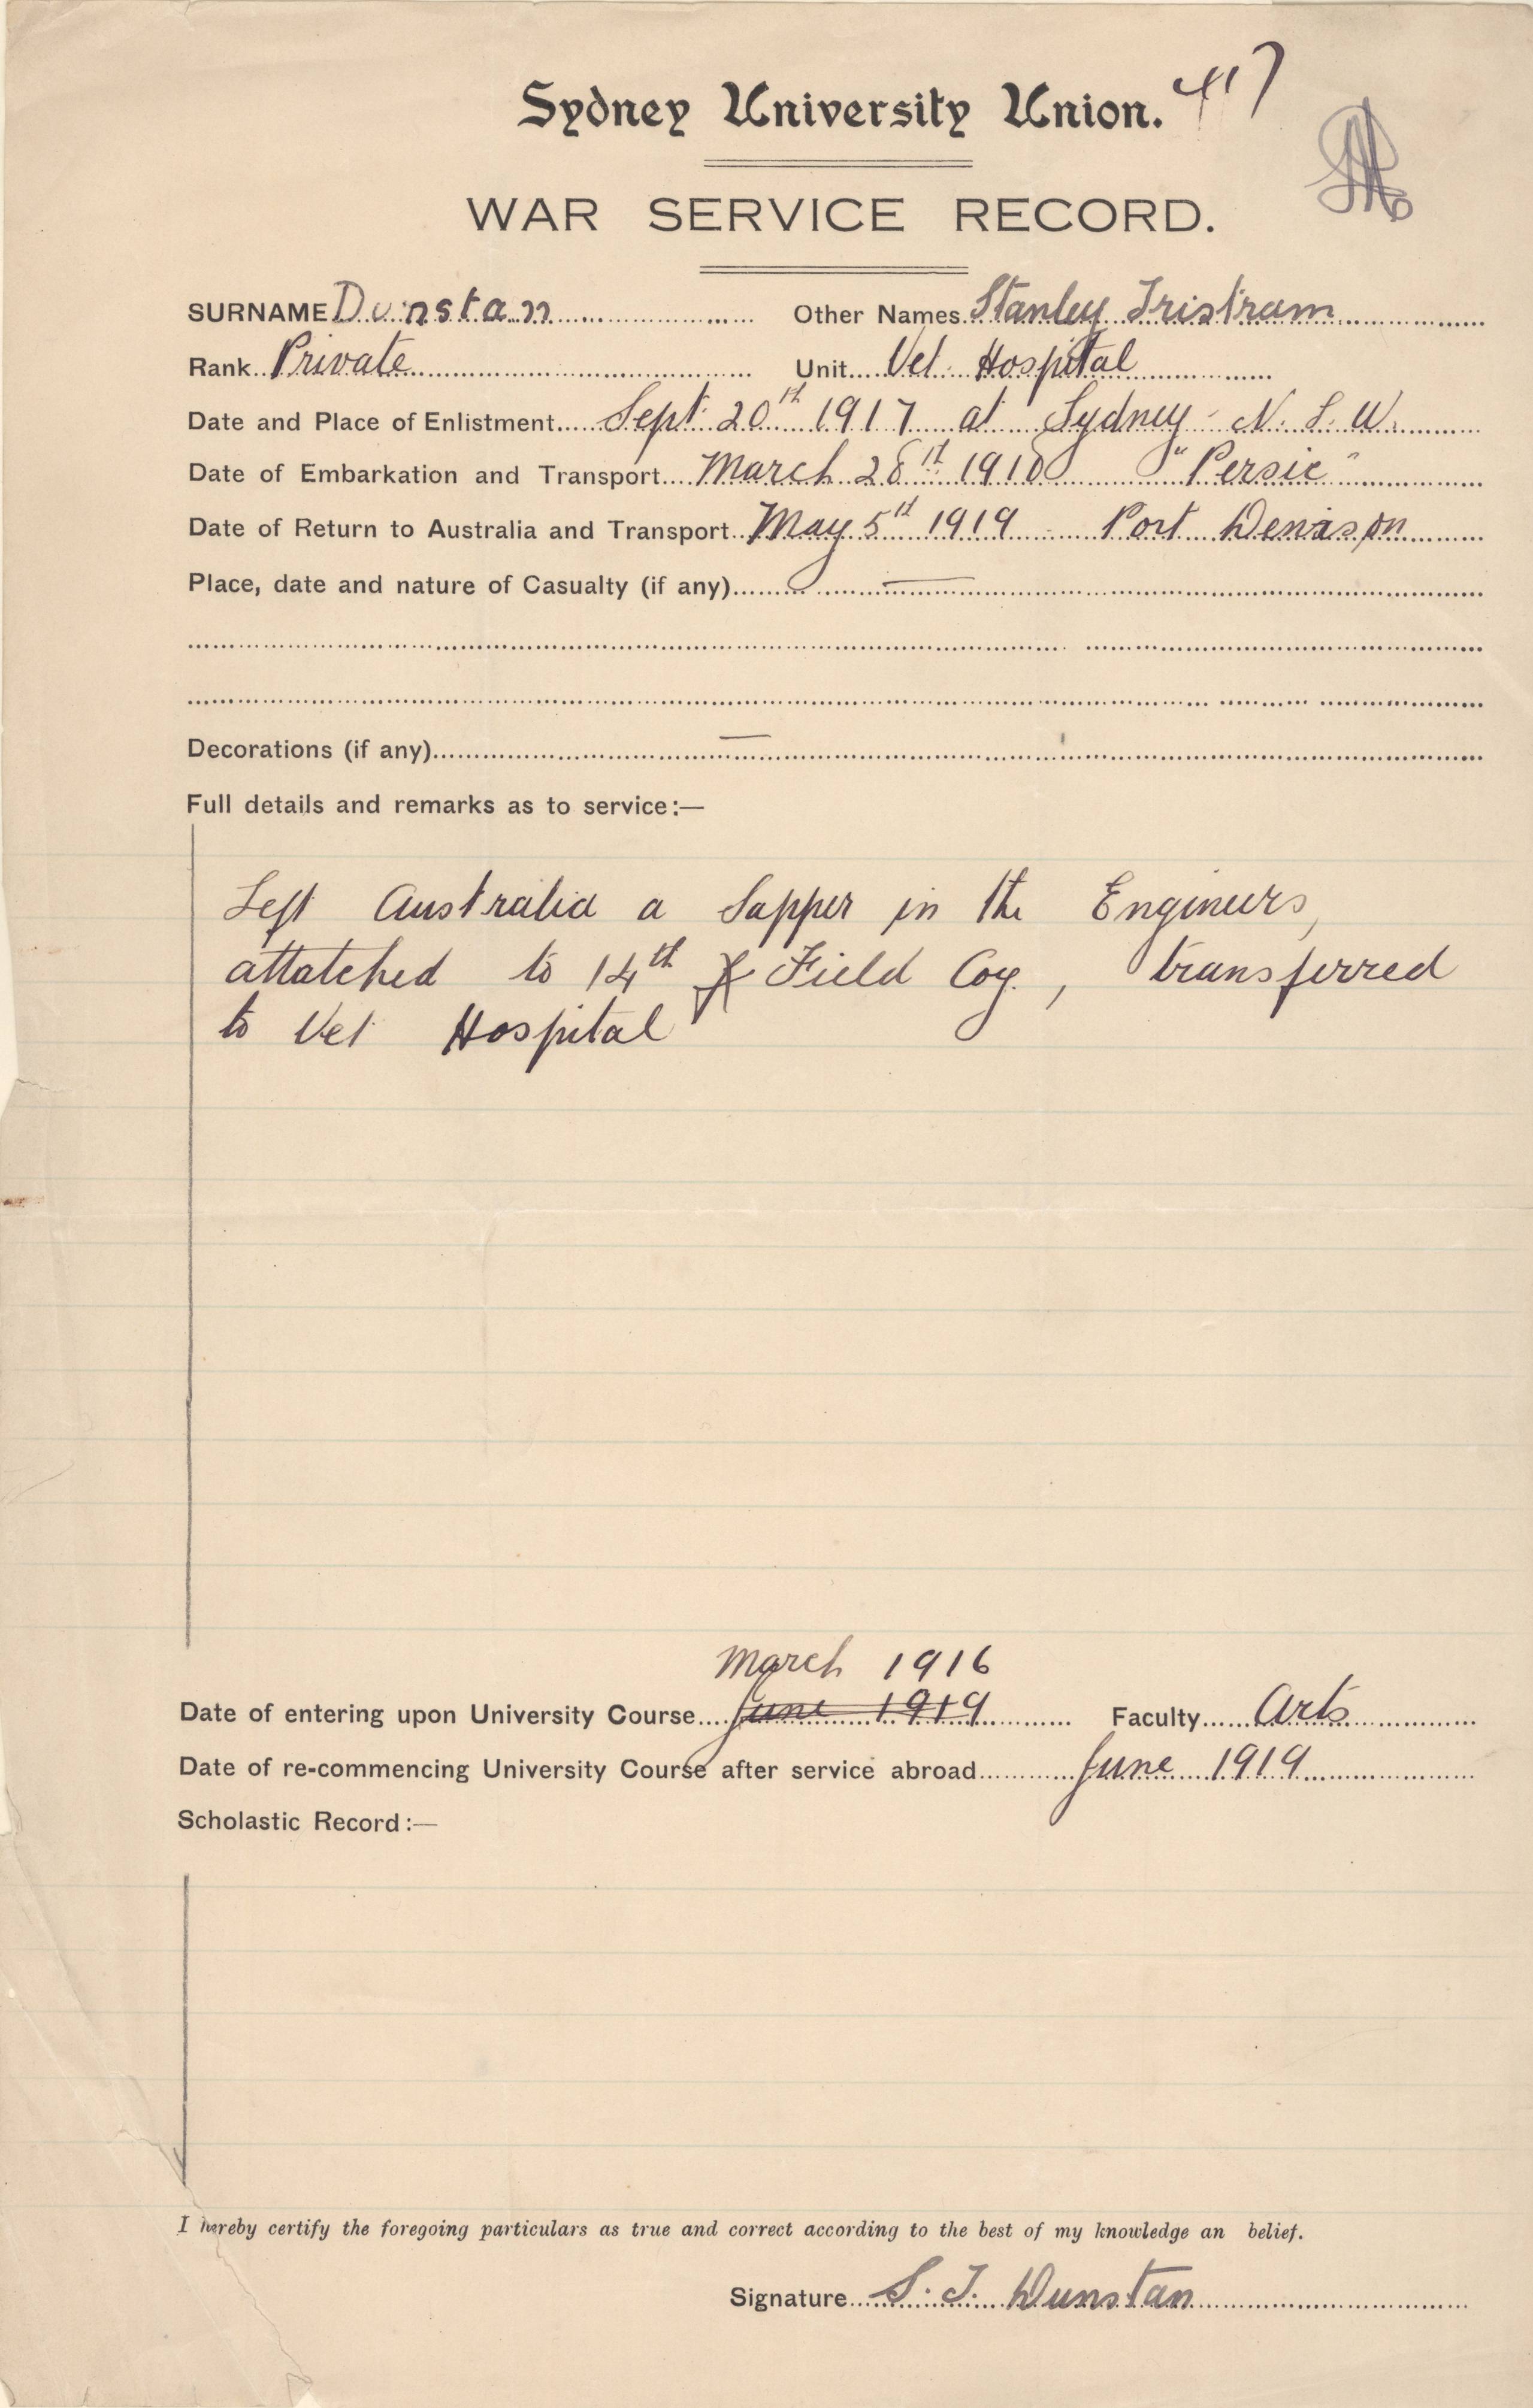 Sydney University Union. 417
WAR SERVICE RECORD.
SURNAME Dunstan Other Names Stanley Tristram
Rank Private Unit Vet. Hospital
Date and Place of Enlistment Sept. 20th 1917 at Sydney N. S. W.
Date of Embarkation and Transport March 28th 1918 "Persic"
Date of Return to Australia and Transport May 5th 1919 - Port Denison
Place, date and nature of Casualty (if any) —
Decorations (if any) —
Full details and remarks as to service:—
Left Australia a Sapper in the Engineers,
attatched to 14th Field Coy., transferred
to Vet Hospital
March 1916
Date of entering upon University Course June 1919 Faculty Arts
Date of re-commencing University Course after service abroad June 1919
Scholastic Record:—
I hereby certify the foregoing particulars as true and correct according to the best of my knowledge an belief.
Signature S. T. Dunstan